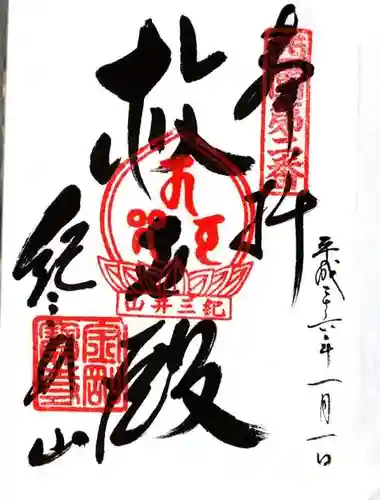 奉拝
西国第二番
平成二十六年一月一日
救世殿
紀三井山
紀三井山
金剛寳寺